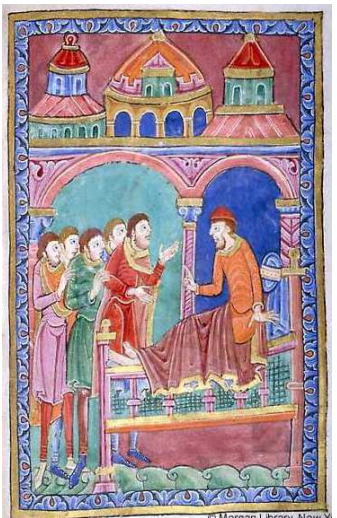 © Morgan Library, New Y